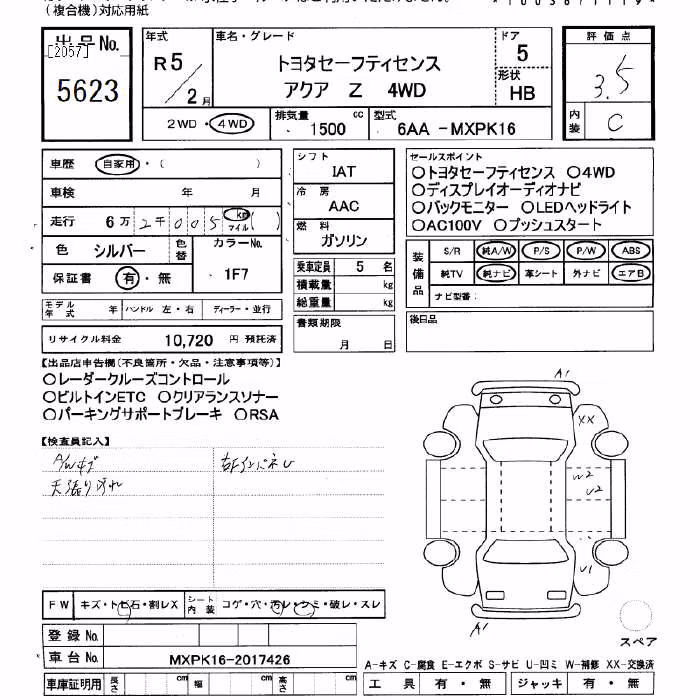 (複合機)対応用紙
出品No.
[2057]
5623
年式
R5/2月
車名・グレード
トヨタセーフティセンス
アクア Z 4WD
ドア
5
形状
HB
評価点
3.5
内装
C
2WD・4WD
排気量
1500 cc
型式
6AA -MXPK16
車歴 自家用・( )
車検 年 月
走行 6万2千005 km マイル ( )
色 シルバー 色替 カラーNo. 1F7
保証書 有・無
モデル年式 年 ハンドル 左・右 ディーラー・並行
リサイクル料金 10,720 円 預託済
シフト
IAT
冷房
AAC
燃料
ガソリン
乗車定員 5 名
積載量 kg
総重量 kg
書類期限
月 日
セールスポイント
○トヨタセーフティセンス ○4WD
○ディスプレイオーディオナビ
○バックモニター ○LEDヘッドライト
○AC100V ○プッシュスタート
装備品
S/R 純A/W P/S P/W ABS
純TV 純ナビ 革シート 外ナビ エアB
ナビ型番:
後日品
【出品店申告欄(不良箇所・欠品・注意事項等)】
○レーダークルーズコントロール
○ビルトインETC ○クリアランスソナー
○パーキングサポートブレーキ ○RSA
【検査員記入】
A/Wキズ
右FインパネU
天張り汚れ
A1
XX
W2
U2
U1
A1
スペア
FW キズ・トビ石・割レX
シート内装 コゲ・穴・汚レ・シミ・破レ・スレ
登録No.
車台No. MXPK16-2017426
車庫証明用 長さ cm 幅 cm 高さ cm
A-キズ C-腐食 E-エクボ S-サビ U-凹ミ W-補修 XX-交換済
工具 有・無 ジャッキ 有・無